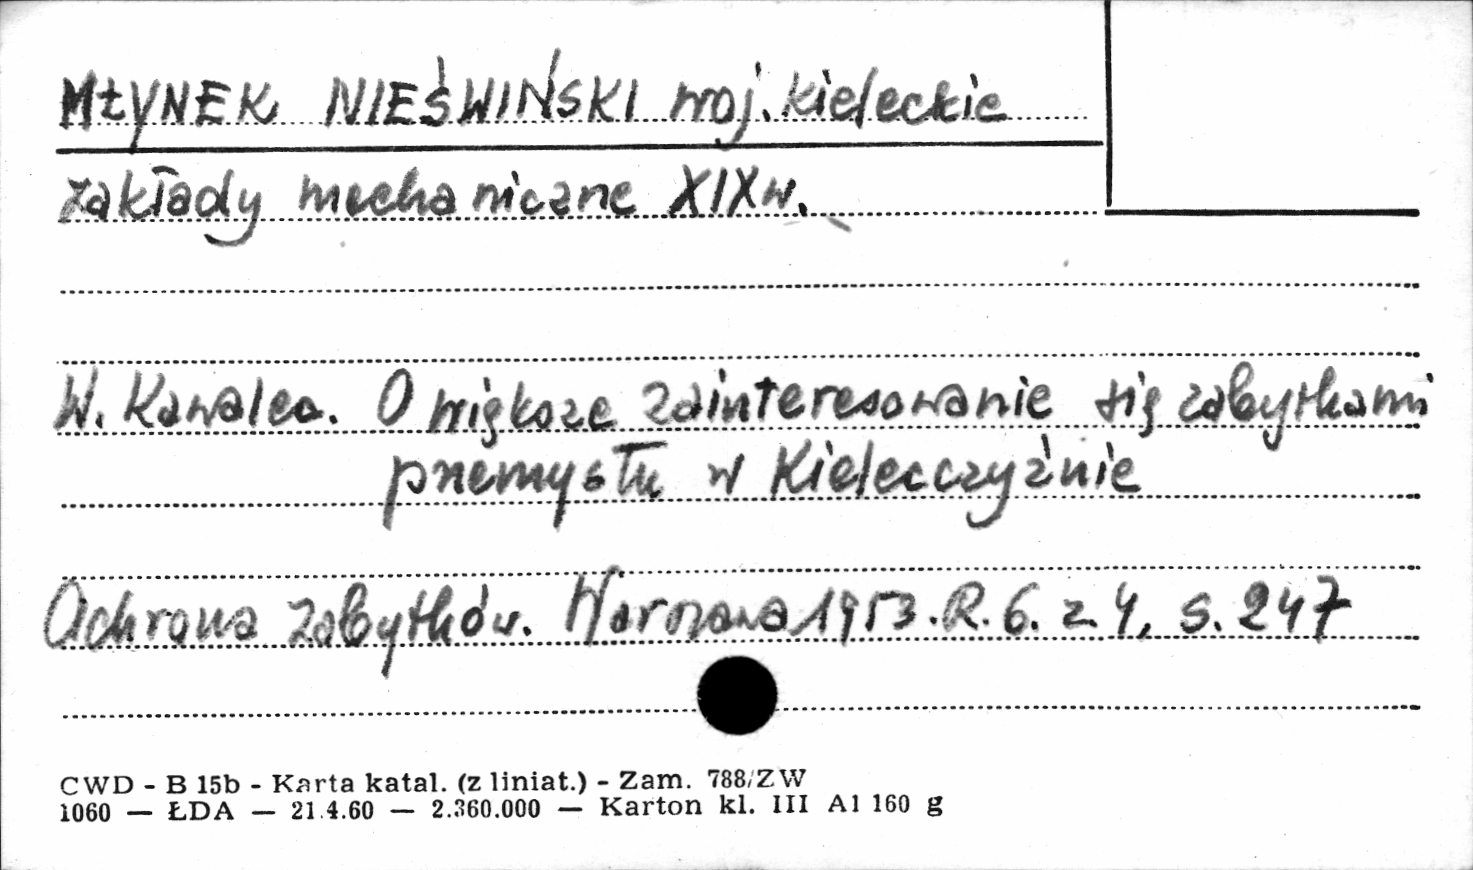 MŁYNEK NIEŚWIŃSKI woj. kieleckie
zakłady mechaniczne XIX w.
W. Kawalec. O większe zainteresowanie się zabytkami
przemysłu w Kielecczyźnie
Ochrona Zabytków. Warszawa 1953. R. 6. z. 4, s. 247
CWD - B 15b - Karta katal. (z liniat.) - Zam. 788/ZW
1060 — ŁDA — 21.4.60 — 2.360.000 — Karton kl. III A1 160 g